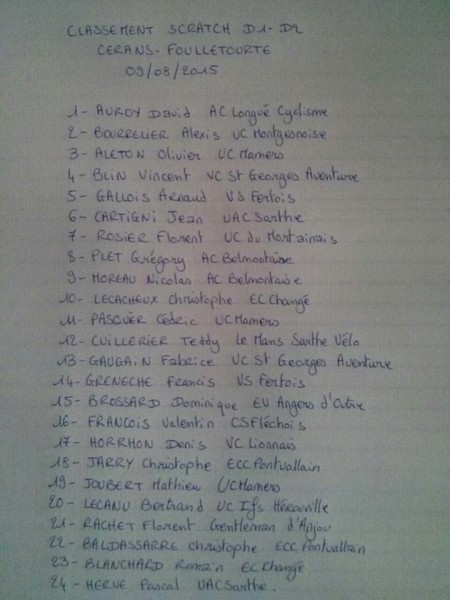 CLASSEMENT SCRATCH D1-D2
CERANS-FOULLETOURTE
09/08/2015
1- AUROY David AC Longué Cyclisme
2- BOURRELIER Alexis UC Montgesnoise
3- ALETON Olivier UC Mamers
4- BLIN Vincent VC St Georges Aventure
5- GALLOIS Arnaud VS Fertois
6- CARTIGNI Jean UAC Sarthe
7- ROSIER Florent UC du Mortainais
8- PLET Grégory AC Belmontaise
9- MOREAU Nicolas AC Belmontaise
10- LECACHEUX Christophe EC Changé
11- PASQUER Cédric UC Mamers
12- CUILLERIER Teddy Le Mans Sarthe Vélo
13- GAUGAIN Fabrice VC St Georges Aventure
14- GRENECHE Francis VS Fertois
15- BROSSARD Dominique EV Angers d'Outre
16- FRANCOIS Valentin CS Fléchois
17- HORRHON Denis VC Lionnais
18- JARRY Christophe ECC Pontvallain
19- JOUBERT Mathieu UC Mamers
20- LECANU Bertrand UC Ifs Hérouville
21- RACHET Florent Gentleman d'Anjou
22- BALDASSARRE Christophe ECC Pontvallain
23- BLANCHARD Romain EC Changé
24- HERVE Pascal UAC Sarthe.